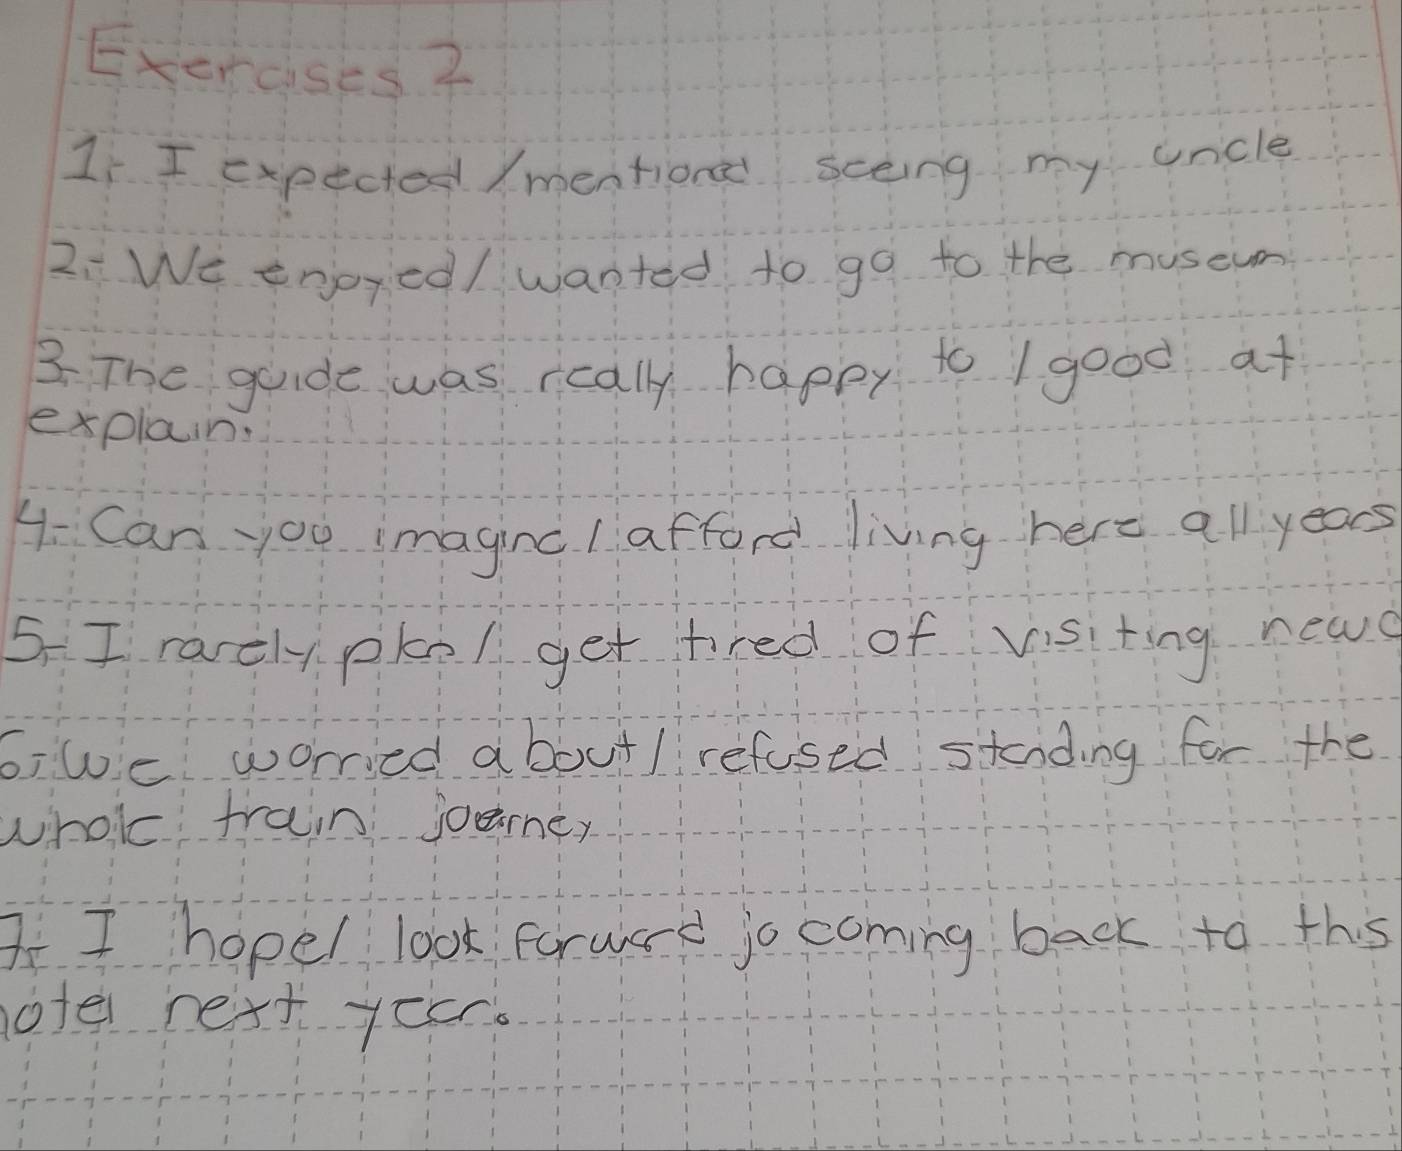 Exercises 2
1- I expected / mentioned seeing my uncle
2- We enjoyed / wanted to go to the museum
3- The guide was really happy to / good at
explain.
4- Can you imagine / afford living here all years
5- I rarely plan / get tired of visiting new
6- We worried about / refused standing for the
whole train journey
7- I hope / look forward jo coming back to this
hotel next year.